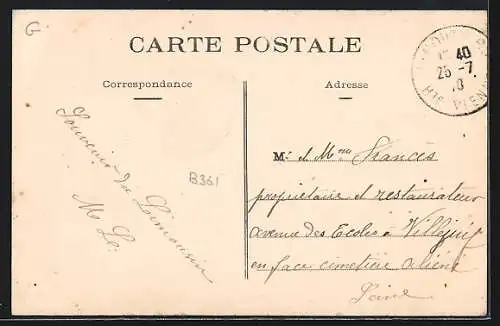 G
CARTE POSTALE
Correspondance
Adresse
40
25 -7
Hte VIENNE
Souvenir du Limousin
M Le
B361
Mr & Mme Francès
propriétaire et restaurateur
avenue des Ecoles à Villejuif
en face cimetière
Seine